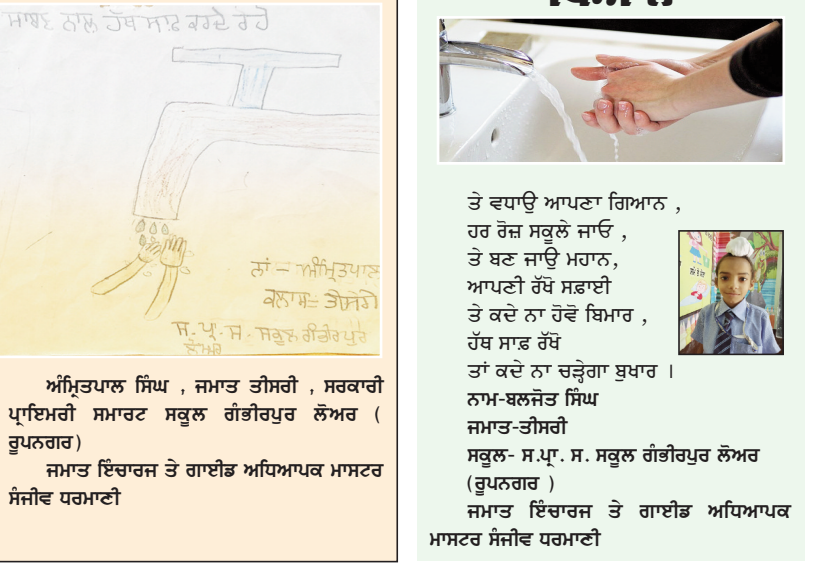 ਸਾਬਣ ਨਾਲ ਹੱਥ ਸਾਫ਼ ਕਰਦੇ ਰਹੋ
ਨਾਂ = ਅੰਮ੍ਰਿਤਪਾਲ
ਕਲਾਸ = ਤੀਸਰੀ
ਸ. ਪ੍ਰ. ਸ. ਸਕੂਲ ਗੰਭੀਰਪੁਰ
ਲੋਅਰ
ਅੰਮ੍ਰਿਤਪਾਲ ਸਿੰਘ , ਜਮਾਤ ਤੀਸਰੀ , ਸਰਕਾਰੀ
ਪ੍ਰਾਇਮਰੀ ਸਮਾਰਟ ਸਕੂਲ ਗੰਭੀਰਪੁਰ ਲੋਅਰ (
ਰੂਪਨਗਰ)
ਜਮਾਤ ਇੰਚਾਰਜ ਤੇ ਗਾਈਡ ਅਧਿਆਪਕ ਮਾਸਟਰ
ਸੰਜੀਵ ਧਰਮਾਣੀ
ਤੇ ਵਧਾਉ ਆਪਣਾ ਗਿਆਨ ,
ਹਰ ਰੋਜ਼ ਸਕੂਲੇ ਜਾਓ ,
ਤੇ ਬਣ ਜਾਉ ਮਹਾਨ,
ਆਪਣੀ ਰੱਖੋ ਸਫ਼ਾਈ
ਤੇ ਕਦੇ ਨਾ ਹੋਵੋ ਬਿਮਾਰ ,
ਹੱਥ ਸਾਫ਼ ਰੱਖੋ
ਤਾਂ ਕਦੇ ਨਾ ਚੜ੍ਹੇਗਾ ਬੁਖਾਰ ।
ਨਾਮ-ਬਲਜੋਤ ਸਿੰਘ
ਜਮਾਤ-ਤੀਸਰੀ
ਸਕੂਲ- ਸ.ਪ੍ਰਾ. ਸ. ਸਕੂਲ ਗੰਭੀਰਪੁਰ ਲੋਅਰ
(ਰੂਪਨਗਰ )
ਜਮਾਤ ਇੰਚਾਰਜ ਤੇ ਗਾਈਡ ਅਧਿਆਪਕ
ਮਾਸਟਰ ਸੰਜੀਵ ਧਰਮਾਣੀ